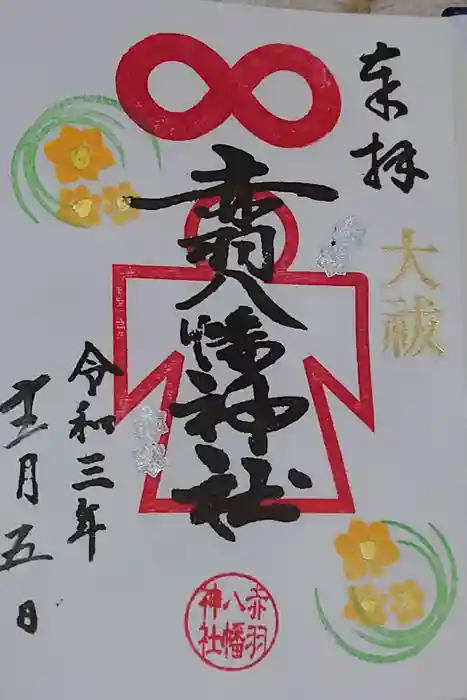 奉拝
大祓
赤羽八幡神社
令和三年
十二月五日
赤羽
八幡
神社